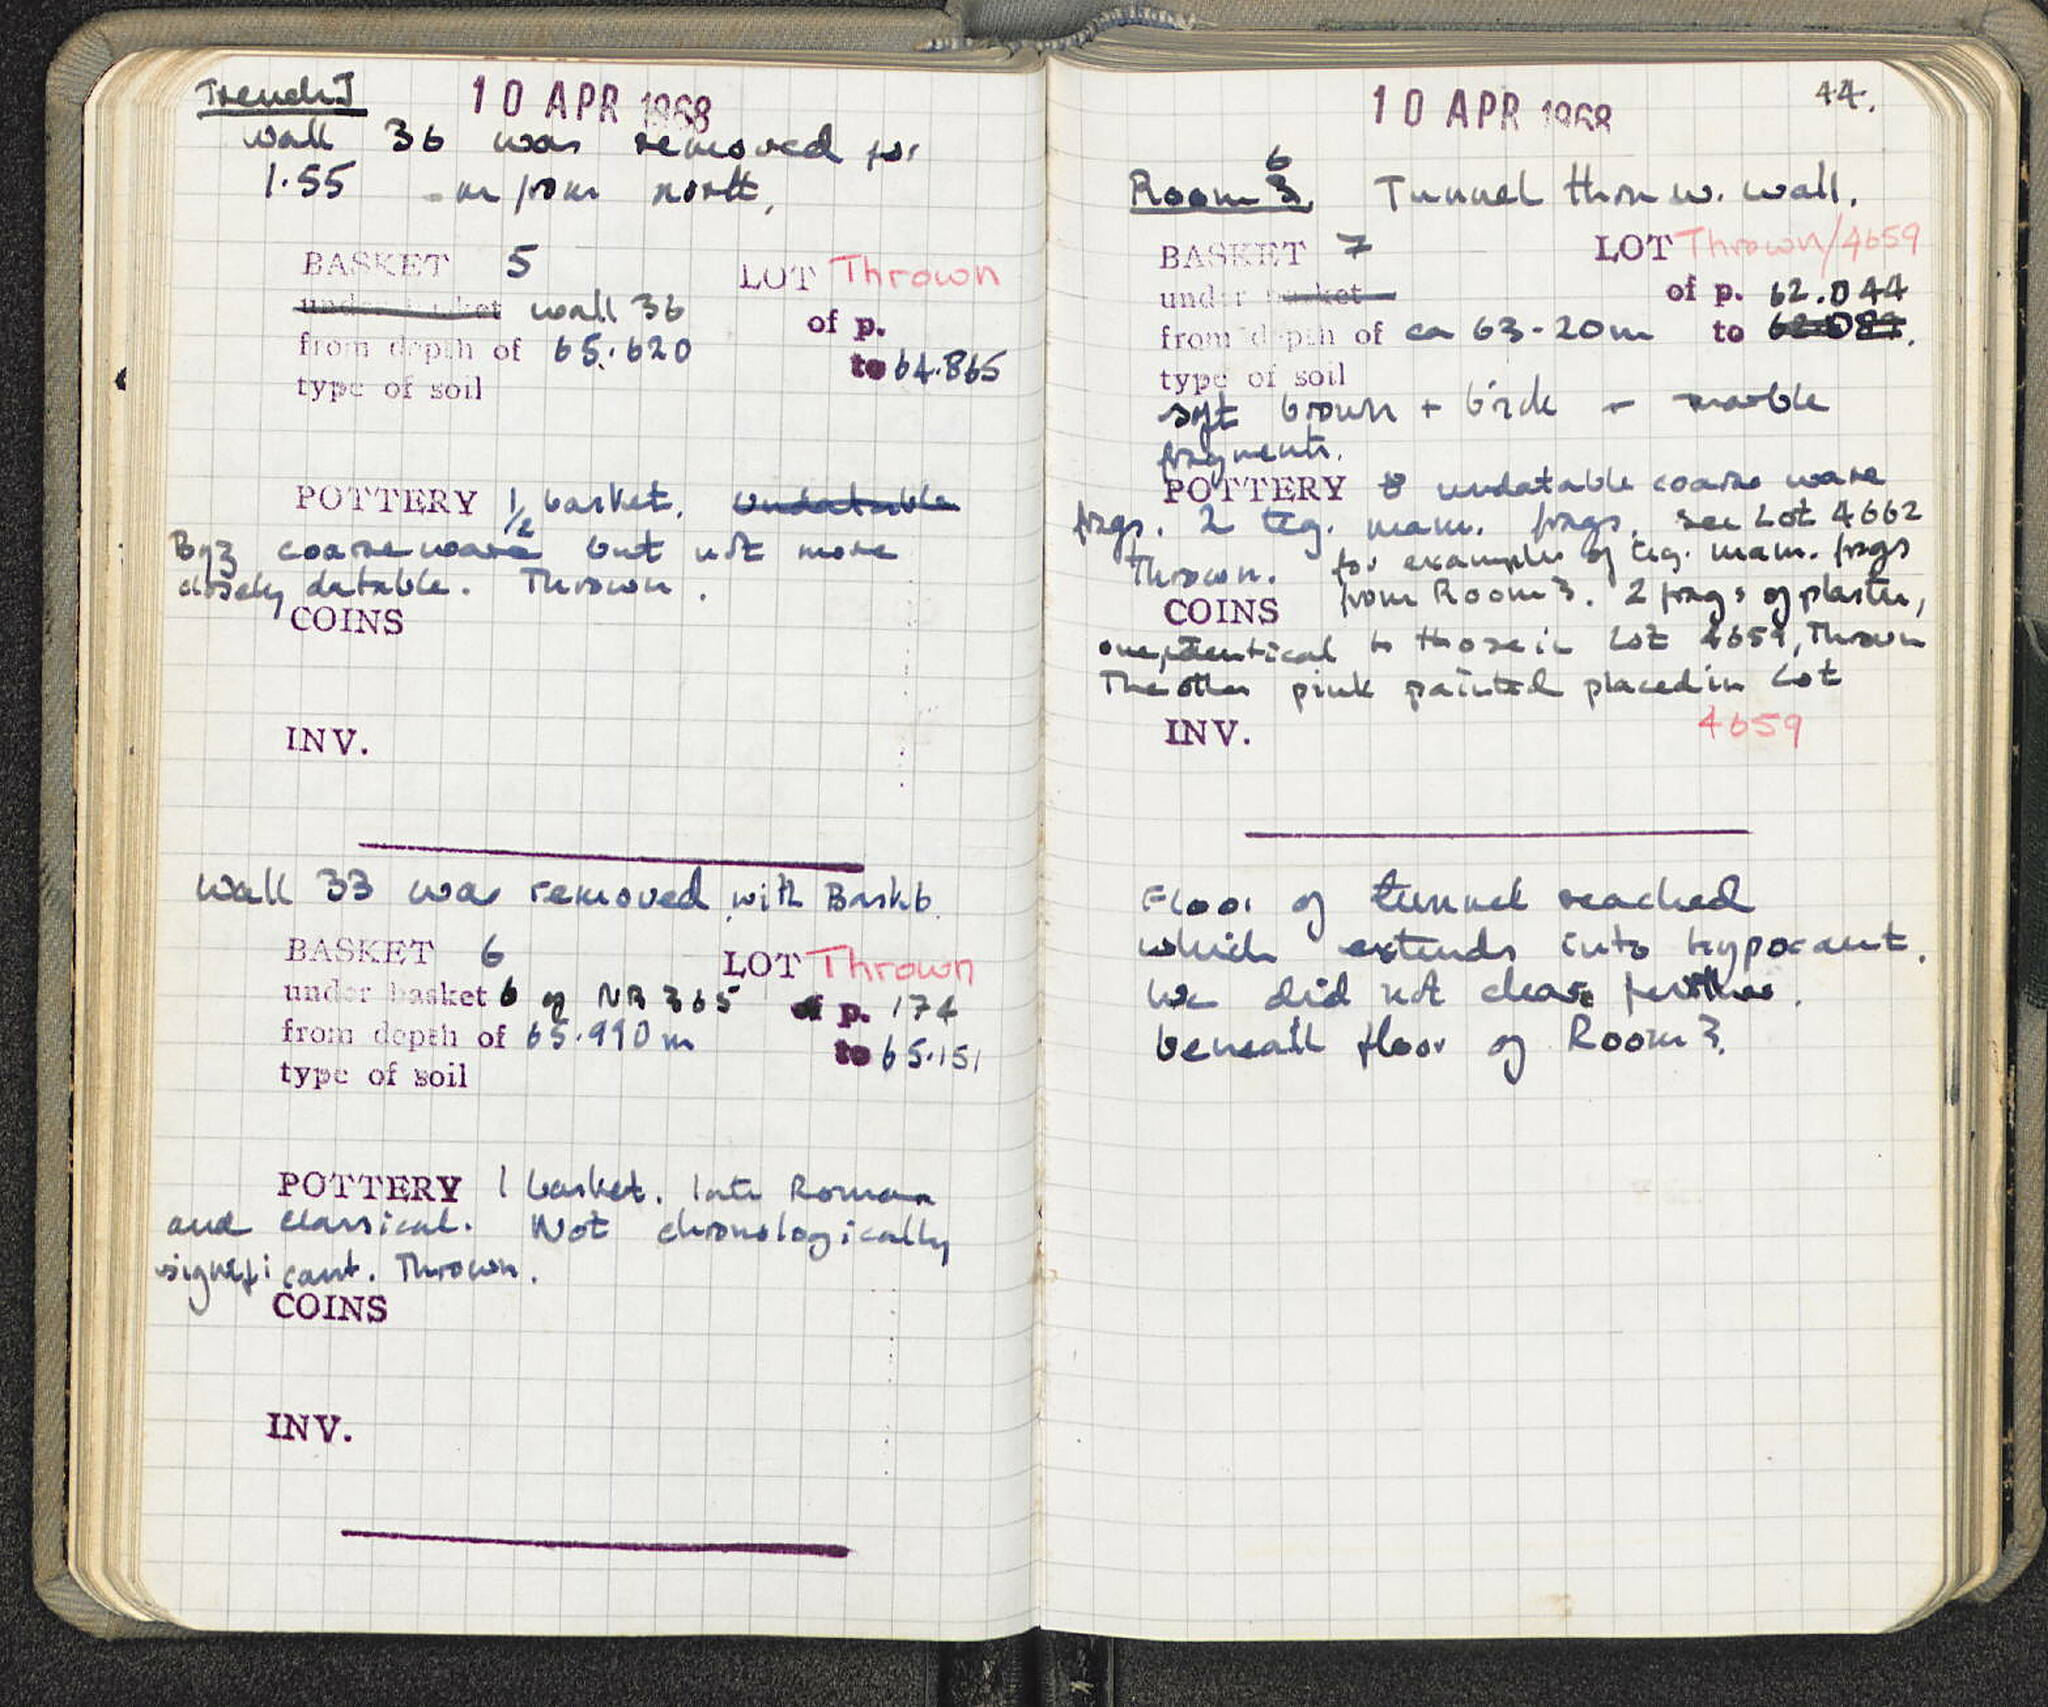 Trench J
10 APR 1968
Wall 36 was removed for
1.55 m from north,
BASKET 5
LOT Thrown
under basket wall 36
of p.
from depth of 65.620
to 64.865
type of soil
POTTERY 1/2 basket. Undatable
Byz coarse ware but not more
closely datable. Thrown.
COINS
INV.
Wall 33 was removed with Bask 6.
BASKET 6
LOT Thrown
under basket 6 of NB 365
of p. 174
from depth of 65.990 m
to 65.151
type of soil
POTTERY 1 basket. late Roman
and Classical. Not chronologically
significant. Thrown.
COINS
INV.
10 APR 1968
44.
6
Room 3 Tunnel thru w. wall.
BASKET 7
LOT Thrown/4659
under basket
of p. 62.044
from depth of ca 63.20m
to
type of soil
soft brown + brick + marble
fragments.
POTTERY 8 undatable coarse ware
frags. 2 teg. mam. frags. See Lot 4662
Thrown. for examples of teg. mam. frags
from Room 3. 2 frags of plaster,
COINS
one, identical to those in Lot 4659, Thrown
The other pink painted placed in Lot
4659
INV.
Floor of tunnel reached
which extends into hypocaust.
We did not clear further.
beneath floor of Room 3.